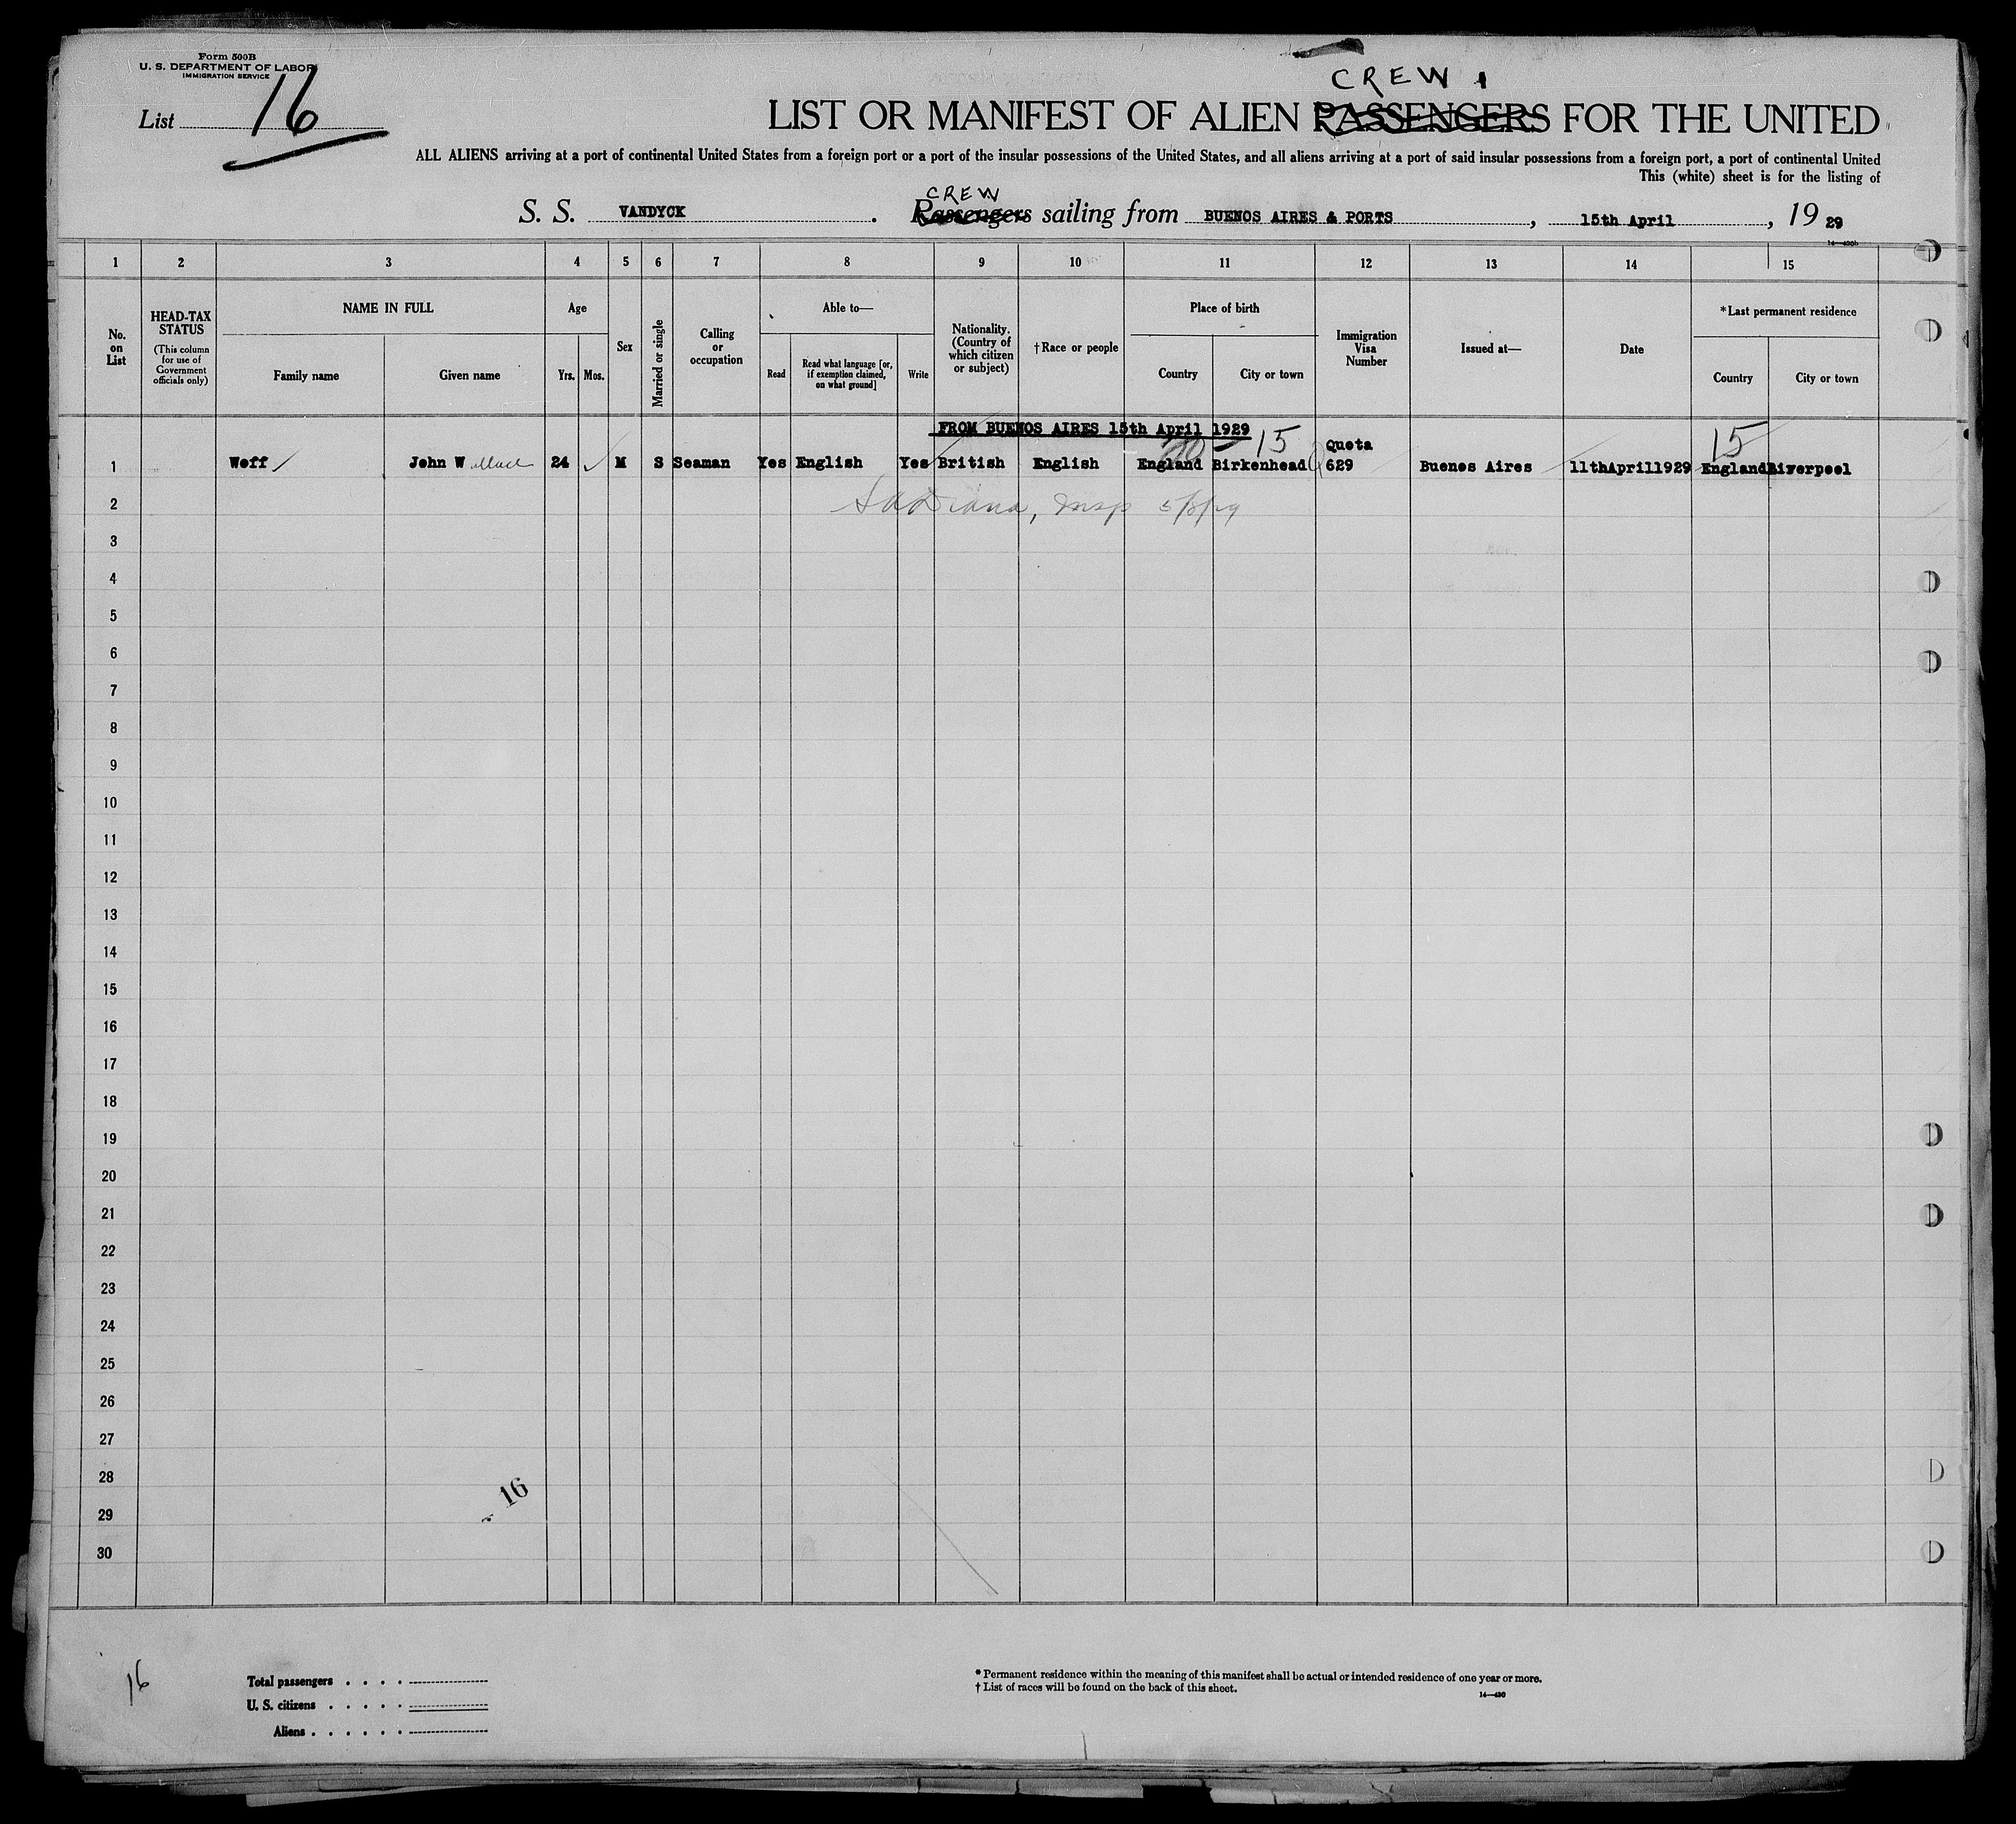 Form 500B
U. S. DEPARTMENT OF LABOR
IMMIGRATION SERVICE
List 16
CREW
LIST OR MANIFEST OF ALIEN PASSENGERS FOR THE UNITED
ALL ALIENS arriving at a port of continental United States from a foreign port or a port of the insular possessions of the United States, and all aliens arriving at a port of said insular possessions from a foreign port, a port of continental United
This (white) sheet is for the listing of
CREW
S. S. VANDYCK . Passengers sailing from BUENOS AIRES & PORTS , 15th April , 19 29
14—430b
1 2 3 4 5 6 7 8 9 10 11 12 13 14 15
No. on List
HEAD-TAX STATUS
(This column for use of Government officials only)
NAME IN FULL
Family name
Given name
Age
Yrs. Mos.
Sex
Married or single
Calling or occupation
Able to—
Read
Read what language [or, if exemption claimed, on what ground]
Write
Nationality. (Country of which citizen or subject)
†Race or people
Place of birth
Country
City or town
Immigration Visa Number
Issued at—
Date
*Last permanent residence
Country
City or town
FROM BUENOS AIRES 15th April 1929
15
15
Quota
1 Woff John W 24 M S Seaman Yes English Yes British English England Birkenhead 629 Buenos Aires 11thApril1929 England Liverpool
2
3
4
5
6
7
8
9
10
11
12
13
14
15
16
17
18
19
20
21
22
23
24
25
26
27
28
29
30
16
16
Total passengers . . . .
U. S. citizens . . . . .
Aliens . . . . . .
* Permanent residence within the meaning of this manifest shall be actual or intended residence of one year or more.
† List of races will be found on the back of this sheet.
14—430